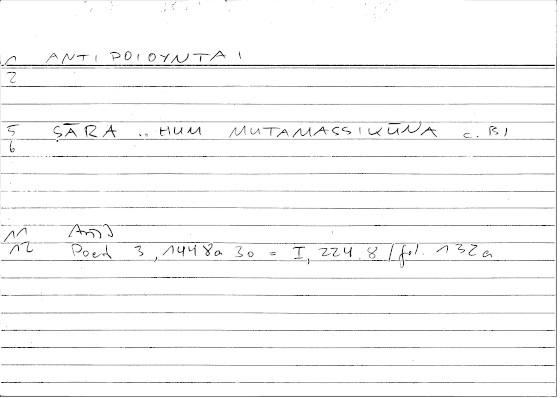 1 ANTIPOIOYNTAI
2
5 ṢĀRA .. HUM MUTAMASSIKŪNA c. BI
6
11
12 Poet 3, 1448a 30 = I, 224.8 / fol. 132a